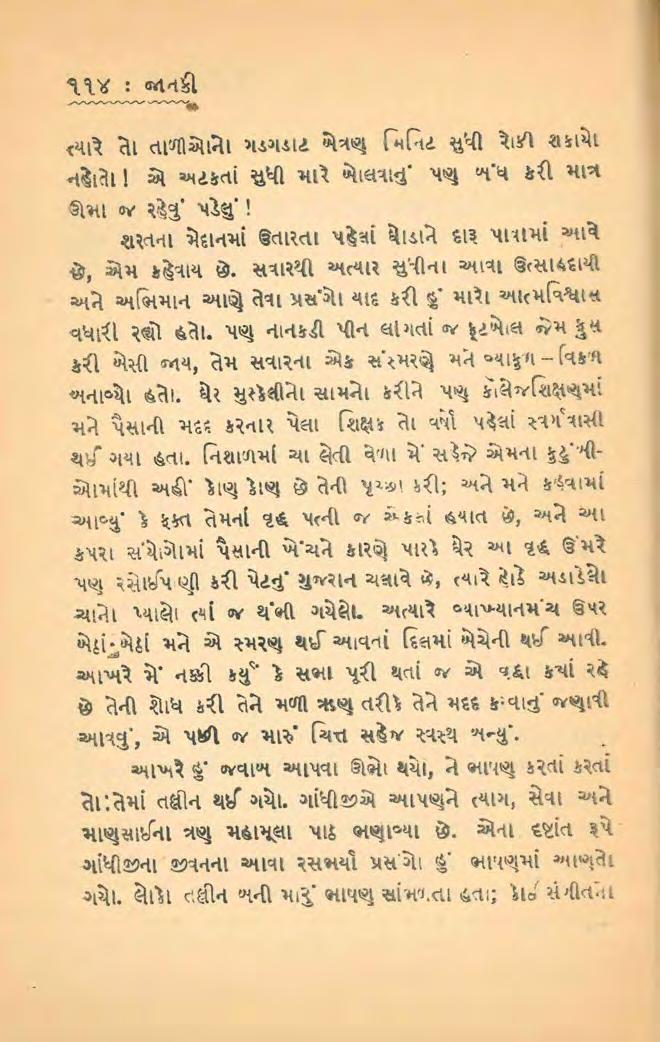 ૧૧૪ : જાનકી
ત્યારે તો તાળીઓનો ગડગડાટ બેત્રણ મિનિટ સુધી રોકી શકાયો
નહોતો! એ અટકતાં સુધી મારે બોલવાનું પણ બંધ કરી માત્ર
ઊભા જ રહેવું પડેલું!
શરતના મેદાનમાં ઉતારતા પહેલાં ઘોડાને દારૂ પાવામાં આવે
છે, એમ કહેવાય છે. સવારથી અત્યાર સુધીના આવા ઉત્સાહદાયી
અને અભિમાન આણે તેવા પ્રસંગો યાદ કરી હું મારો આત્મવિશ્વાસ
વધારી રહ્યો હતો. પણ નાનકડી પીન લાગતાં જ ફૂટબોલ જેમ ફુસ
કરી બેસી જાય, તેમ સવારના એક સંસ્મરણે મને વ્યાકુળ – વિકળ
બનાવ્યો હતો. ઘેર મુશ્કેલીનો સામનો કરીને પણ કૉલેજશિક્ષણમાં
મને પૈસાની મદદ કરનાર પેલા શિક્ષક તો વર્ષો પહેલાં સ્વર્ગવાસી
થઈ ગયા હતા. નિશાળમાં ચા લેતી વેળા મેં સહેજે એમના કુટુંબી-
ઓમાંથી અહીં કોણ કોણ છે તેની પૃચ્છા કરી; અને મને કહેવામાં
આવ્યું કે ફક્ત તેમનાં વૃદ્ધ પત્ની જ એકલાં હયાત છે, અને આ
કપરા સંયોગોમાં પૈસાની ખેંચને કારણે પારકે ઘેર આ વૃદ્ધ ઉંમરે
પણ રસોઈપાણી કરી પેટનું ગુજરાન ચલાવે છે, ત્યારે હોઠે અડાડેલો
ચાનો પ્યાલો ત્યાં જ થંભી ગયેલો. અત્યારે વ્યાખ્યાનમંચ ઉપર
બેઠાં બેઠાં મને એ સ્મરણ થઈ આવતાં દિલમાં બેચેની થઈ આવી.
આખરે મેં નક્કી કર્યું કે સભા પૂરી થતાં જ એ વૃદ્ધા કયાં રહે
છે તેની શોધ કરી તેને મળી ઋણ તરીકે તેને મદદ કરવાનું જણાવી
આવવું, એ પછી જ મારું ચિત્ત સહેજ સ્વસ્થ બન્યું.
આખરે હું જવાબ આપવા ઊભો થયો, ને ભાષણ કરતાં કરતાં
તો તેમાં તલ્લીન થઈ ગયો. ગાંધીજીએ આપણને ત્યાગ, સેવા અને
માણસાઈના ત્રણ મહામૂલા પાઠ ભણાવ્યા છે. એના દૃષ્ટાંત રૂપે
ગાંધીજીના જીવનના આવા રસભર્યા પ્રસંગો હું ભાષણમાં આણતો
ગયો. લોકો તલ્લીન બની મારું ભાષણ સાંભળતા હતા; કોઈ સંગીતના